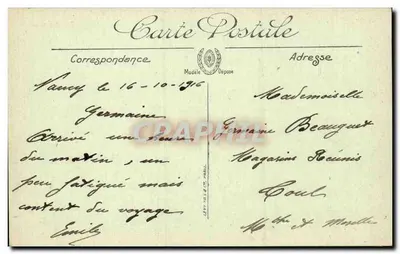 Carte Postale
Correspondance
Modèle Déposé
Adresse
Nancy le 16-10-1916
Germaine
Arrivé un heure
du matin, un
peu fatigué mais
content du voyage
Emile
Mademoiselle
Germaine Beauquet
Magasins Réunis
Toul
Mthe et Moselle